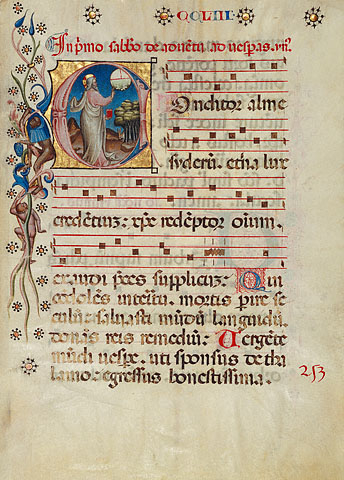 CCLIII.
In p̄mo sabbo de adventu ad vesperas. ym̄.
Conditor alme
syderū. etna lux
credentium. xp̄e redēptor oīum.
exaudi p̄ces supplicum. Qui
condolēs interitu. mortis perire se
culū. salvasti mūdū languidū.
donās reis remediū. Vergēte
mūdi vespe. uti sponsus de tha
lamo. egressus honestissima.
253